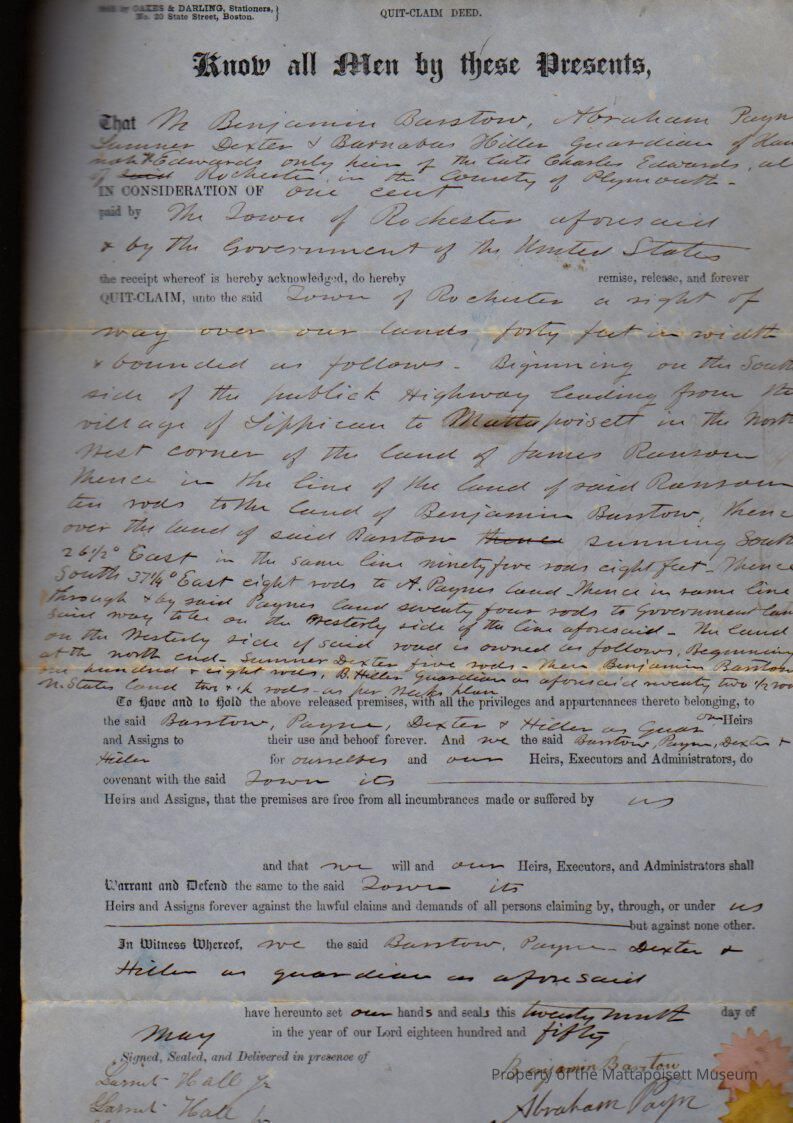 by OAKES & DARLING, Stationers,
No. 20 State Street, Boston.
QUIT-CLAIM DEED.
Know all Men by these Presents,
That We Benjamin Barstow, Abraham Payn
Sumner Dexter & Barnabas Hiller Guardian of Han
nah Edwards only heir of the late Charles Edwards, al
of said Rochester in the County of Plymouth -
IN CONSIDERATION OF one cent
paid by The Town of Rochester aforesaid
& by the Government of the United States
the receipt whereof is hereby acknowledged, do hereby remise, release, and forever
QUIT-CLAIM, unto the said Town of Rochester a right of
way over our lands, forty feet in width
& bounded as follows - Biginning on the South
side of the publick Highway leading from the
village of Sippican to Mattapoisett in the North
West corner of the land of James Ransom
thence in the line of the land of said Ransom
ten rods to the land of Benjamin Barstow, thence
over the land of said Barstow thence running South
26 1/2° East in the same line ninety five rods eight feet - Thence
South 37 1/4° East eight rods to A. Paynes land thence in same line
through & by said Paynes land seventy four rods to Government lan
said way to be on the Westerly side of the line aforesaid - The land
on the Westerly side of said road is owned as follows, Beginning
at the north end - Sumner Dexter five rods - then Benjamin Barstow
one hundred & eight rods, B. Hiller Guardian as aforesaid twenty two 1/2 rods
U. States land two rods - as per plan
To Have and to Hold the above released premises, with all the privileges and appurtenances thereto belonging, to
the said Barstow, Payne, Dexter & Hiller as Guar our Heirs
and Assigns to their use and behoof forever. And we the said Barstow, Payne, Dexter &
Hiller for ourselves and our Heirs, Executors and Administrators, do
covenant with the said Town its
Heirs and Assigns, that the premises are free from all incumbrances made or suffered by us
and that we will and our Heirs, Executors, and Administrators shall
Warrant and Defend the same to the said Town its
Heirs and Assigns forever against the lawful claims and demands of all persons claiming by, through, or under us
but against none other.
In Witness Whereof, we the said Barstow, Payne - Dexter &
Hiller as guardian as aforesaid
have hereunto set our hands and seals this twenty ninth day of
May in the year of our Lord eighteen hundred and fifty
Signed, Sealed, and Delivered in presence of
Benjamin Barstow
Property of the Mattapoisett Museum
Hall Jr
Abraham Payn
Hall Jr